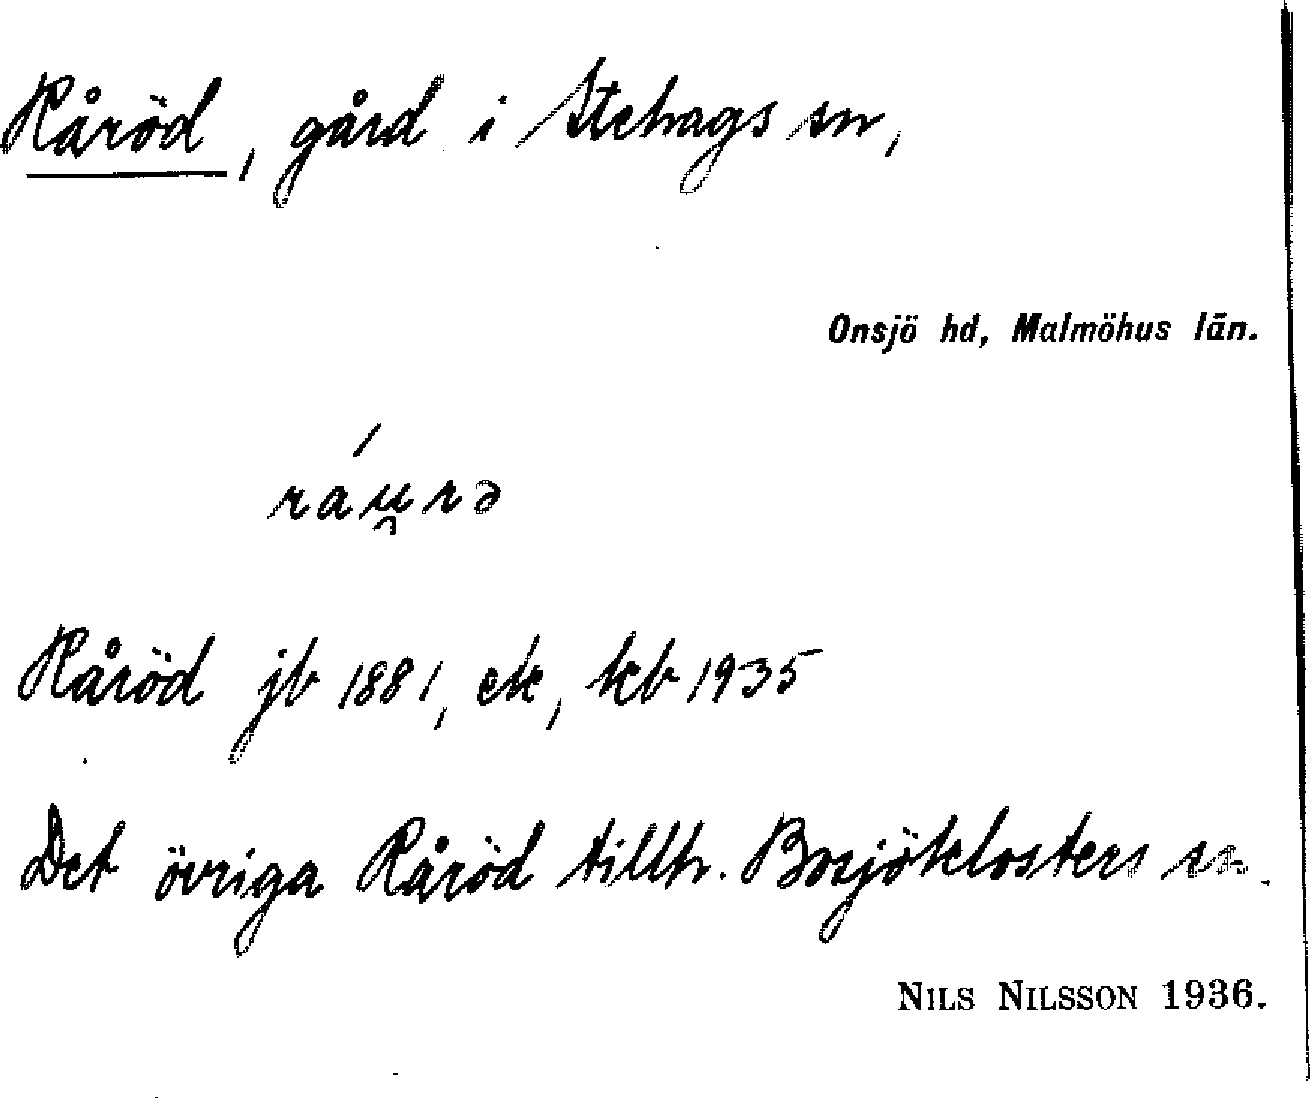 Råröd, gård i Stehags sn,
Onsjö hd, Malmöhus län.
ráu̯rə
Råröd jb 1881, ek, kb 1935
Det övriga Råröd tillh. Bosjöklosters sn.
NILS NILSSON 1936.